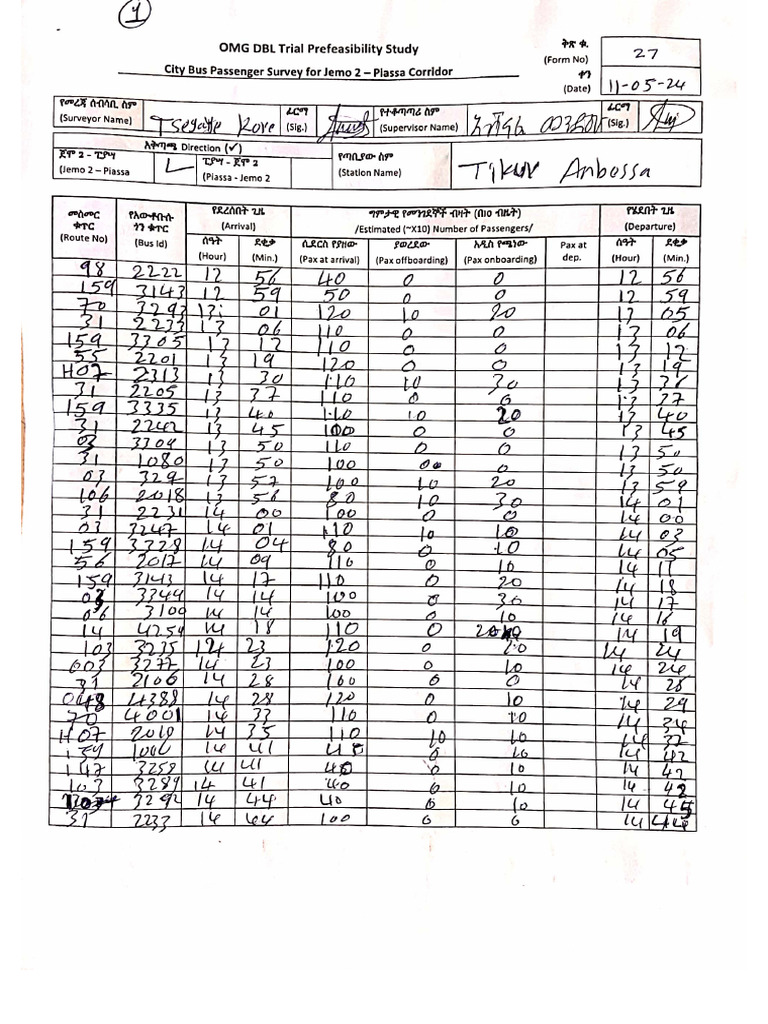 4
OMG DBL Trial Prefeasibility Study
City Bus Passenger Survey for Jemo 2 – Piassa Corridor
ቅጽ ቁ. (Form No) 27
ቀን (Date) 11-05-24
የመረጃ ሰብሳቢ ስም (Surveyor Name) Tsegaye Kore ፊርማ (Sig.) የተቆጣጣሪ ስም (Supervisor Name) ፊርማ (Sig.)
አቅጣጫ Direction (✓)
ጀሞ 2 - ፒያሣ (Jemo 2 – Piassa ✓ ፒያሣ - ጀሞ 2 (Piassa - Jemo 2 የጣቢያው ስም (Station Name) Tikur Anbossa
መስመር ቁጥር (Route No) የአውቶቡሱ ጎን ቁጥር (Bus Id) የደረሰበት ጊዜ (Arrival) ግምታዊ የመንገደኞች ብዛት (በ10 ብዜት) /Estimated (~X10) Number of Passengers/ የሄደበት ጊዜ (Departure)
ሰዓት (Hour) ደቂቃ (Min.) ሲደርስ የያዘው (Pax at arrival) ያወረደው (Pax offboarding) አዲስ የጫነው (Pax onboarding) Pax at dep. ሰዓት (Hour) ደቂቃ (Min.)
98 2222 12 56 40 0 0 12 56
159 3143 12 59 50 0 0 12 59
70 3293 13 01 120 10 20 13 05
31 2233 13 06 110 0 0 13 06
159 3305 13 12 110 0 0 13 12
55 2201 13 19 120 0 0 13 19
H07 2313 13 30 110 10 30 13 36
31 2205 13 37 110 0 0 13 37
159 3335 13 40 110 10 20 13 40
31 2242 13 45 100 0 0 13 45
03 3304 13 50 110 0 0 13 50
31 1080 13 50 100 00 0 13 50
03 329 13 57 100 10 20 13 59
106 2018 13 56 80 10 30 14 01
31 2231 14 00 100 0 0 14 00
03 3247 14 01 110 10 10 14 03
159 3328 14 04 80 0 10 14 05
56 2017 14 09 110 0 10 14 11
159 3143 14 17 110 0 20 14 18
03 3344 14 14 100 0 30 14 17
06 3100 14 14 100 0 10 14 16
14 4254 14 18 110 0 14 19
103 3235 14 23 120 0 20 14 24
003 3277 14 23 100 0 10 14 24
31 2106 14 28 100 0 0 14 28
048 4388 14 28 120 0 10 14 29
70 4001 14 33 110 0 10 14 34
H07 2010 14 35 110 10 10 14 37
159 14 41 0 10 14 42
147 3258 14 41 40 0 10 14 42
103 3289 14 41 40 0 10 14 42
3292 14 44 40 0 10 14 45
31 2233 14 44 100 0 0 14